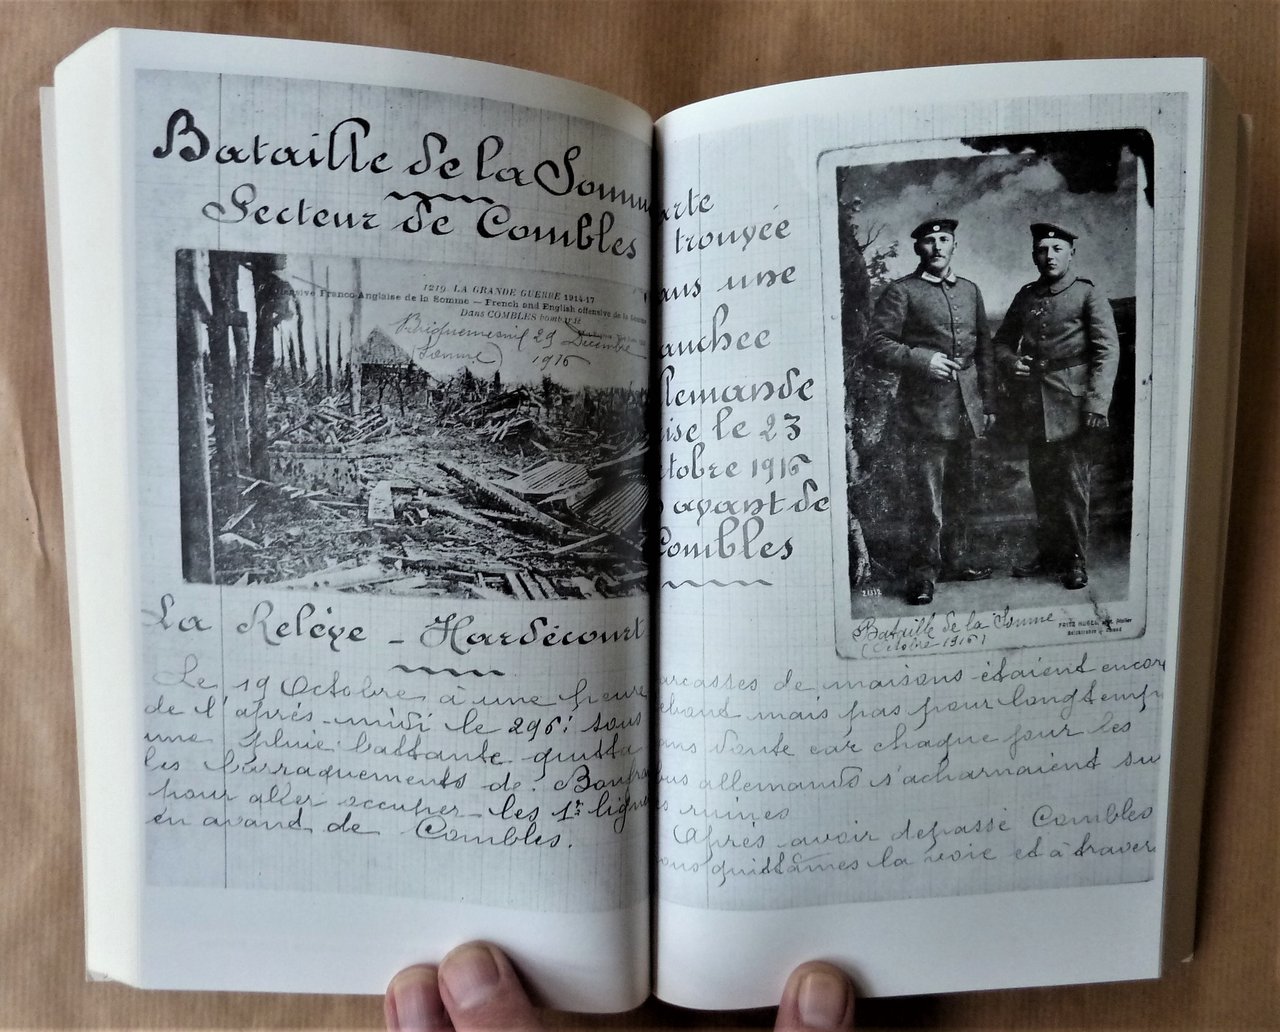 Bataille de la Somm
Secteur de Combles
1219 LA GRANDE GUERRE 1914-17
nsive Franco-Anglaise de la Somme — French and English offensive de la Somme
Dans COMBLES bombardé
Briquemesnil 29 Décembre
(Somme) 1916
La Relève - Hardécourt
Le 19 Octobre à une heure
de l'après-midi le 296e sous
une pluie battante quitta
les barraquements de Bonfra
pour aller occuper les 1res ligne
en avant de Combles.
arte
trouvée
ans une
anchee
llemande
ise le 23
ctobre 1916
avant de
Combles
21312
Bataille de la Somme
(Octobre 1916)
FRITZ HUBER
arcasses de maisons étaient encor
ebout mais pas pour longtemp
ans doute car chaque jour les
bus allemands s'acharnaient su
s ruines
Après avoir dépassé Combles
ous quittâmes la voie et à traver